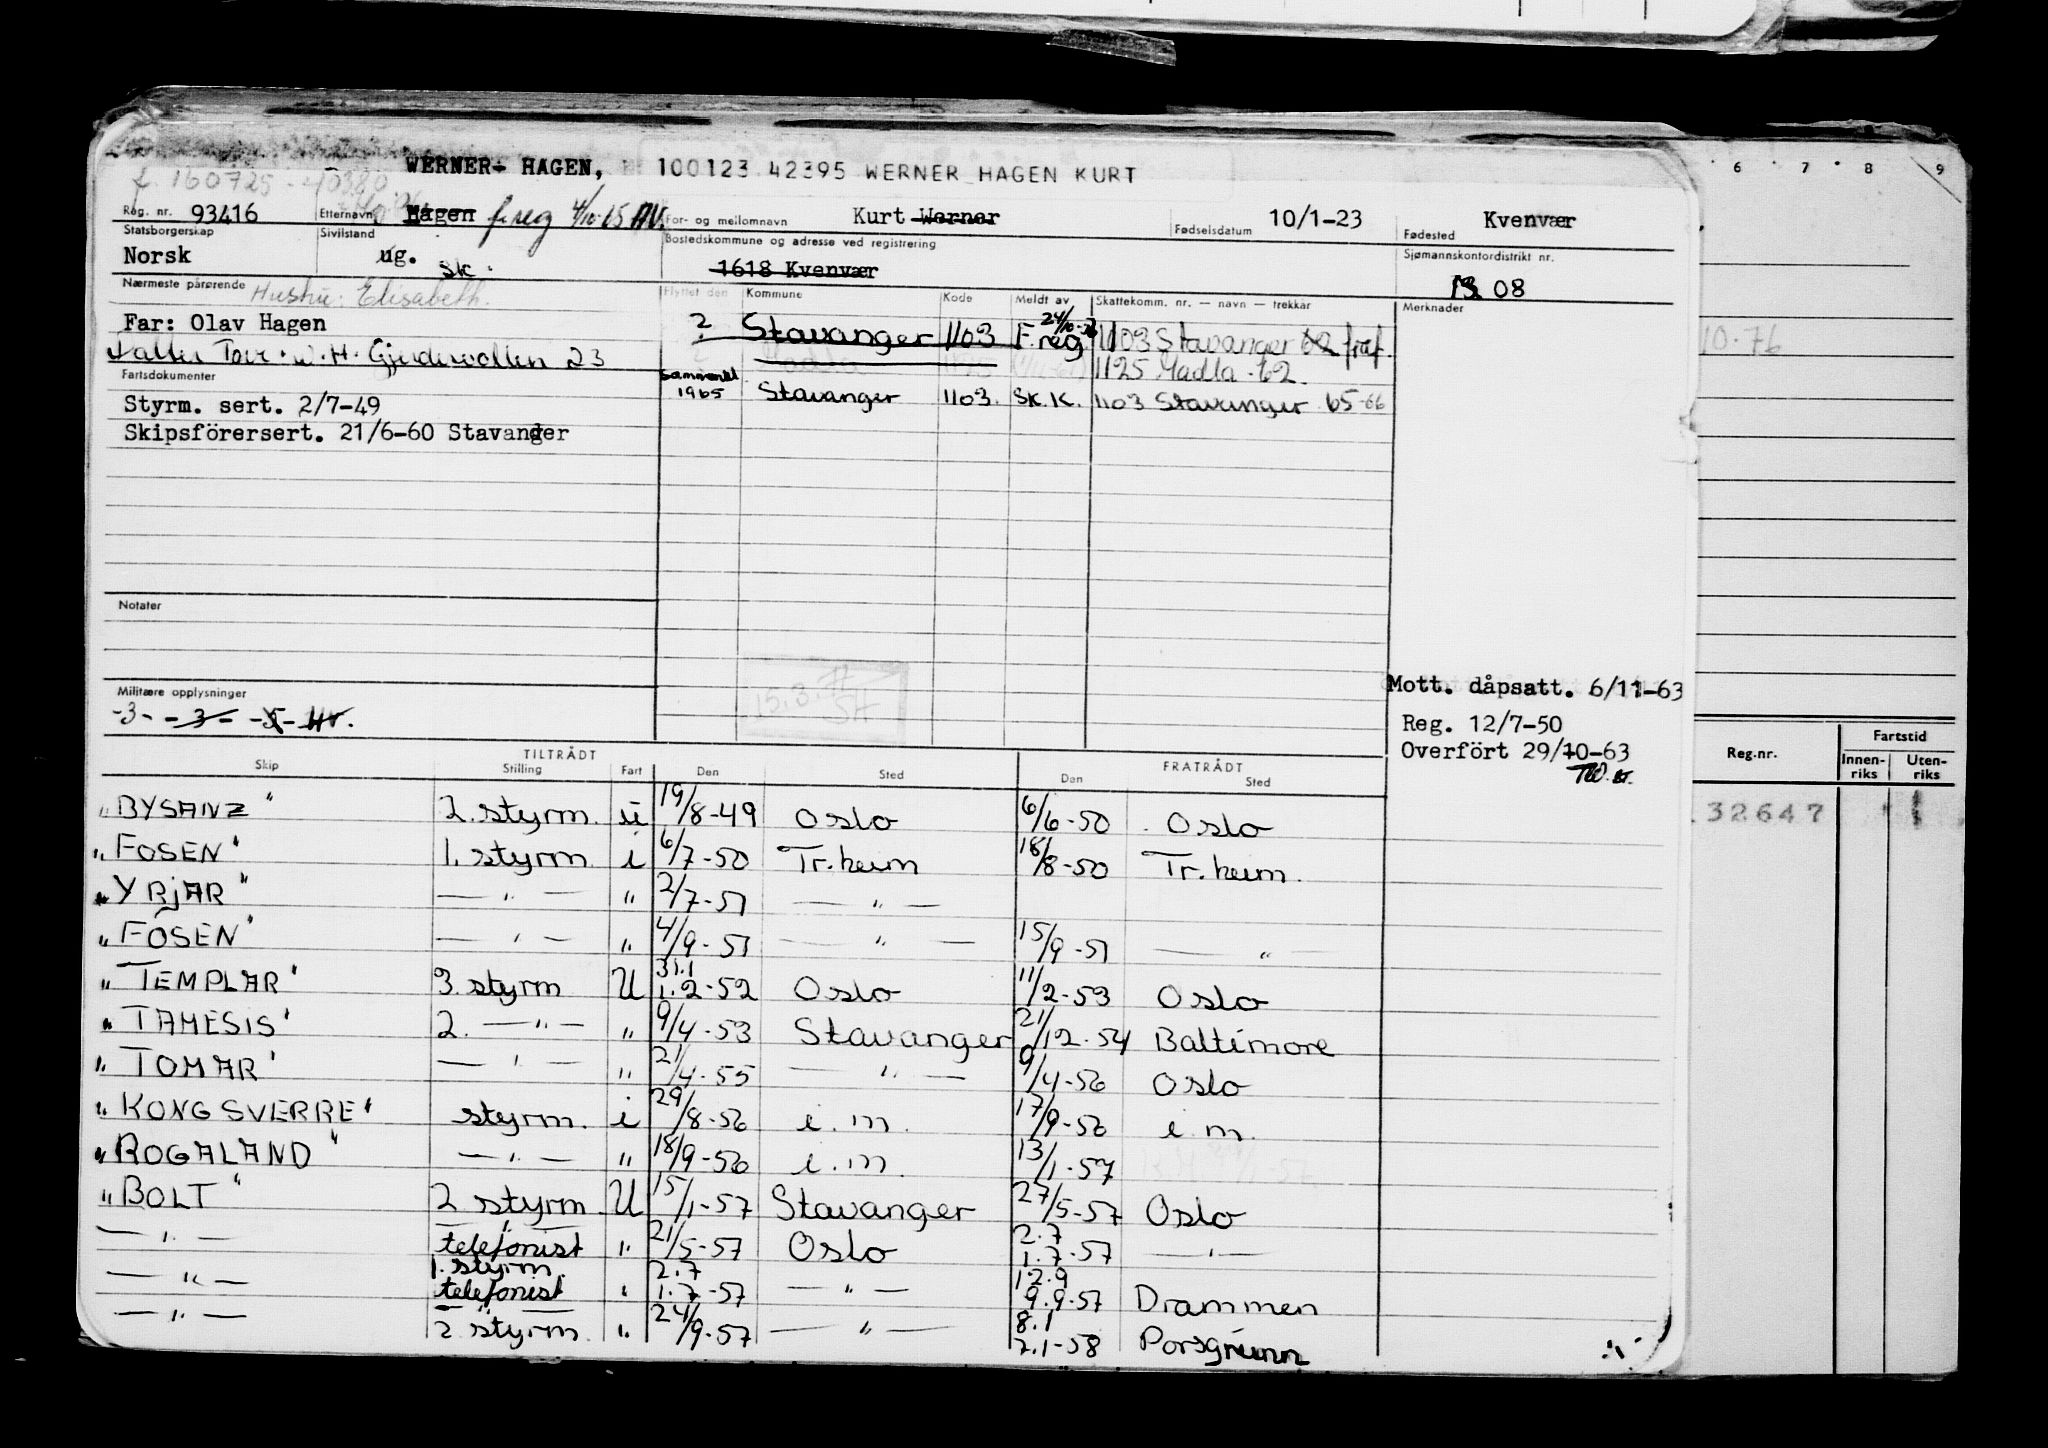 WERNER- HAGEN, 100123 42395 WERNER HAGEN KURT
f. 160725 - 40380
Reg. nr. 93416 Etternavn Hagen f.reg 4/10-65 AV. For- og mellomnavn Kurt Werner Fødselsdatum 10/1-23 Fødested Kvenvær
Statsborgerskap Norsk Sivilstand ug. sk. Bostedskommune og adresse ved registrering 1618 Kvenvær Sjømannskontordistrikt nr. 08
Nærmeste pårørende Hustru: Elisabeth. Flyttet den Kommune Kode Meldt av Skattekomm. nr. — navn — trekkår Merknader
Far: Olav Hagen ? Stavanger 1103 F.reg 1103 Stavanger 62 fraf.
W.H. Gjendevollen 23 1125 Madla - 62
Fartsdokumenter 1965 Stavanger 1103. SK.K. 1103 Stavanger 65-66
Styrm. sert. 2/7-49
Skipsförersert. 21/6-60 Stavanger
Notater
15.3.
Militære opplysninger
-3- -3- -5-
Mott. dåpsatt. 6/11-63
Reg. 12/7-50
Overfört 29/10-63
TILTRÅDT FRATRÅDT
Skip Stilling Fart Den Sted Den Sted
"BYSANZ" 2. styrm. u 19/8-49 Oslo 6/6-50 Oslo
"FOSEN" 1. styrm i 6/7-50 Tr.heim 18/8-50 Tr.heim.
"YRJAR" — " — " 2/7-51 — " —
"FOSEN" — " — " 4/9-51 — " — 15/9-51 — " —
"TEMPLAR" 3. styrm U 31.1 1.2-52 Oslo 11/2-53 Oslo
"TAMESIS" 2. — " — " 9/4-53 Stavanger 21/12-54 Baltimore
"TOMAR" — " — " 21/4-55 — " — 9/4-56 Oslo
"KONG SVERRE" styrm. i 29/8-56 i.m. 17/9-56 i.m.
"ROGALAND" — " — " 18/9-56 i.m. 13/1-57
"BOLT" 2 styrm U 15/1-57 Stavanger 27/5-57 Oslo
— " — — " — telefonist " 21/5-57 Oslo 2.7 1.7-57 — " —
— " — 1. styrm. telefonist " 2.7 1.7-57 — " — 12.9 9.9-57 Drammen
— " — — " — 2 styrm. " 24/9-57 — " — 8.1 2.1-58 Porsgrunn
6 7 8 9
10.76
Reg.nr. Fartstid
Innenriks Utenriks
32647 1